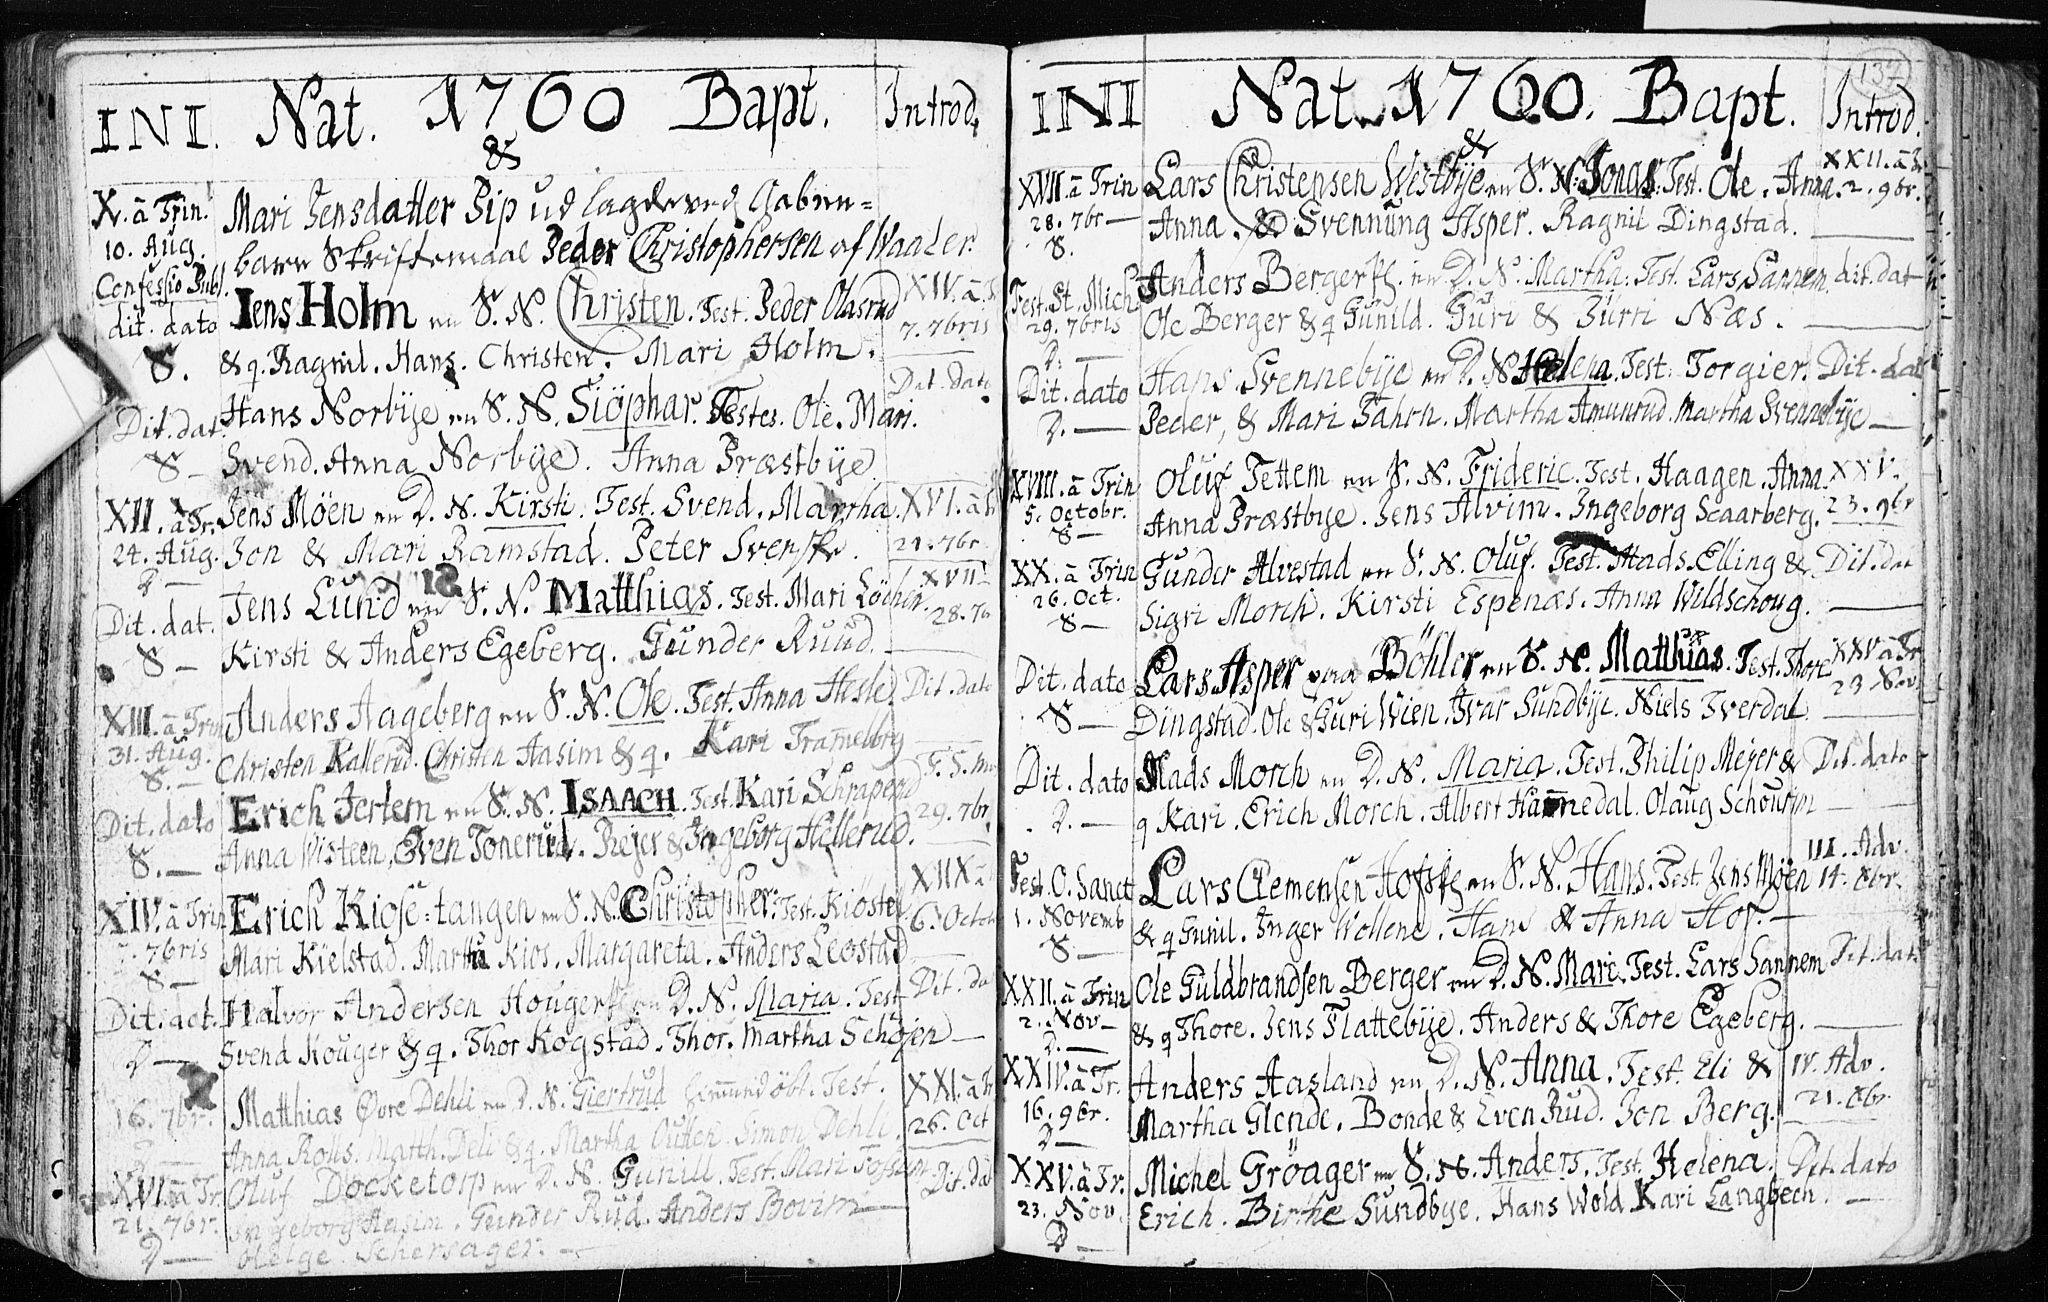 INI. Nat. & 1760 Bapt. Introd.
X. â Trin. Mari Jensdatter Pip udlagde ved Aaben=
10. Aug. bare Skriftemaal Peder Christophersen af Waaler.
Confessio Publ.
dit. dato Jens Holm en S. N. Christen. Test. Peder Olasrud XIV. â
S. & q. Ragnil. Hans. Christen. Mari Holm. 7. 7bris
Dit. dat. Hans Norbÿe en S. N. Siöphar. Testes. Ole. Mari. Dit. dato
S — Svend. Anna Norbÿe. Anna Præstbÿe
XII. â Tr. Jens Möen en D. N. Kirsti. Test. Svend. Martha. XVI. â
24. Aug. Jon & Mari Ramstad. Peter Svenske. 21. 7br.
D —
Dit. dat. Jens Lund en S. N. Matthias. Test. Mari XVII
S — Kirsti & Anders Egeberg. Gunder Ruud. 28. 7b
XIII. â Trin Anders Hageberg en S. N. Ole. Test. Anna Hesle. Dit. dato
31. Aug. Christen Kallerud. Christen Aasim & q. Kari Tramelborg
S. —
Dit. dato Erich Jertem en S. N. ISAACH. Test. Kari F. S. M
S. — Anna Wisteen, Even Tonerud. Rejer & Ingeborg Hellerud. 29. 7br.
XIV. â Trin Erich Kiose=tangen en S. N. Christopher. Test. Kiöstel
7. 7bris Mari Kielstad. Martha Kios. Margareta. Anders Leostad 6. Octob
S —
Dit. dat. Halvor Andersen en D. N. Maria. Test. Dit. da
D — Svend Kouger & q. Thor Kogstad. Thor. Martha Schöjen —
16. 7br. Matthias Øvre Dehli en D. N. Giertrud Test. XXI. â Tr
D — Anna Rolls. Matth. Deli & q. Martha Simon Dehli. 26. Oct
XVI. â Tr. Oluf Docketorp en D. N. Gunill. Test. Mari Fossum Dit. dat
21. 7br. Ingeborg Aasim. Gunder Rud. Anders Bovim
D — Helge Schersager. —
137
INI Nat. & 1760. Bapt. Introd.
XVII. â Trin Lars Christensen Westbÿe en S. N. Jonas. Test. Ole. Anna. XXII. â Tr
28. 7br — Anna. & Svennung Asper. Ragnil Dingstad. 2. 9br.
S.
Fest. St. Mich. Anders en D. N. Martha. Test. Lars Sannem. dit. dat
29. 7bris Ole Berger & q Gunild. Guri & Jurri Næs.
D. —
Dit. dato Hans Svennebÿe en D. N. Helena. Test. Torgier. Dit. dat
D. — Peder, & Mari Fahrn. Martha Amunrud. Martha Svennebÿe —
XVIII. â Trin Oluf Tettem en S. N. Frideric. Test. Haagen. Anna. XXV.
5. Octobr. Anna Præstbye. Jens Alvim. Ingeborg Scaarberg. 23. 9br
S —
XX. â Trin Gunder Alvestad en S. N. Oluf. Test. Mads. Elling & Dit. dat
26. Oct. Sigri Morch. Kirsti Espenæs. Anna Wildschoug.
S —
Dit. dato Lars Asper paa Böhler en S. N. Matthias. Test. Thore XXV â Tr
S — Dingstad. Ole & Guri Wien. Ivar Sundbÿe. Niels Tverdal. 23 Nov
Dit. dato Mads Morch en D. N. Maria. Test. Philip Mejer & Dit. dato
D. — q Kari. Erich Morch. Albert Hannedal. Olaug Schourim
Fest. O. Sanct Lars Clemensen en S. N. Hans. Test. Jens Möen III. Adv.
1. Novemb & q Gunil. Inger Wollene. Hans & Anna Hof. — 14. Xbr.
S —
XXII. â Trin Ole Guldbrandsen Berger en D. N. Mari. Test. Lars Sannem Dit. dat.
2. Nov — & q Thore. Jens Flattebÿe. Anders & Thore Egeberg.
D. —
XXIV. â Tr. Anders Aasland en D. N. Anna. Test. Eli & IV. Adv.
16. 9br. Martha Glende. Bonde & Even Rud. Jon Berg. 21. Xbr
D —
XXV. â Tr. Michel Gröager en S. N. Anders. Test. Helena. Dit. dato
23. Nov. Erich. Birthe Sundbye. Hans Wold Kari Langbech. —
D —